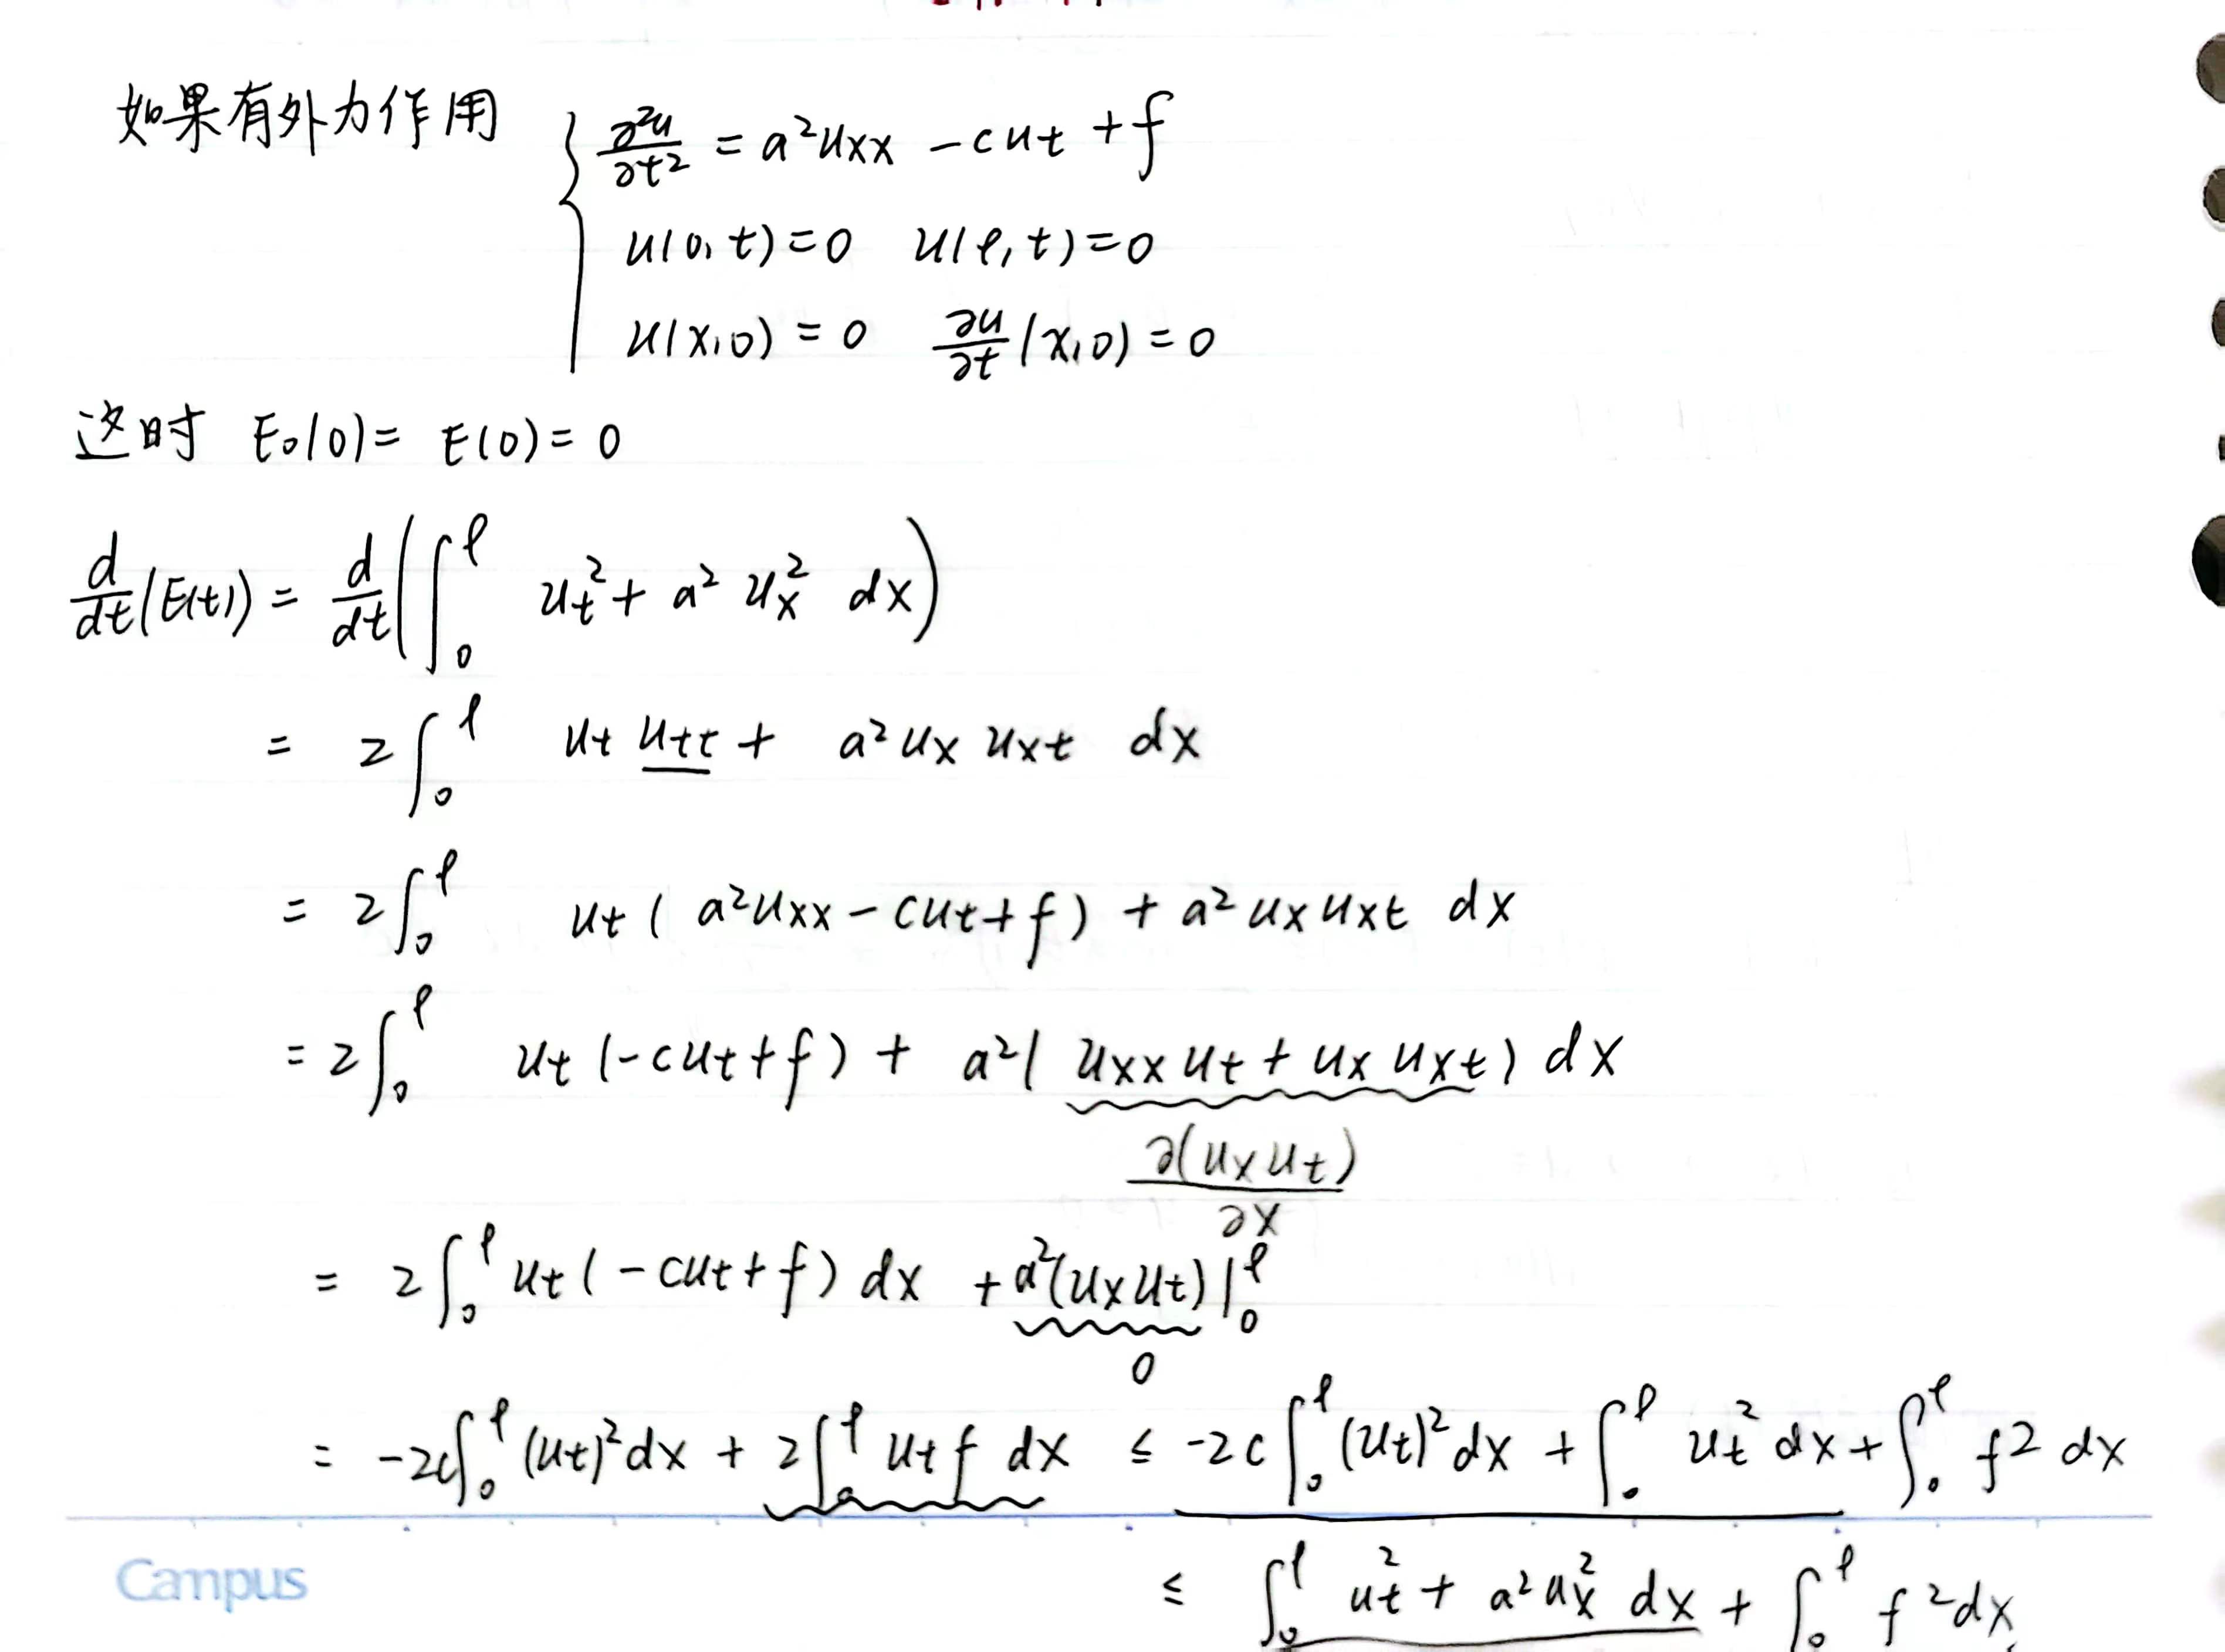 如果有外力作用 { ∂²u/∂t² = a²uxx - cut + f
u(0,t)=0 u(ℓ,t)=0
u(x,0)=0 ∂u/∂t(x,0)=0
这时 E₀(0)= E(0)=0
d/dt(E(t)) = d/dt(∫₀^ℓ ut² + a² ux² dx)
= 2∫₀^ℓ ut utt + a² ux uxt dx
= 2∫₀^ℓ ut(a²uxx - cut + f) + a² ux uxt dx
= 2∫₀^ℓ ut(-cut + f) + a²(uxx ut + ux uxt) dx
∂(ux ut)/∂x
= 2∫₀^ℓ ut(-cut + f) dx + a²(ux ut)|₀^ℓ
0
= -2c∫₀^ℓ (ut)² dx + 2∫₀^ℓ ut f dx ≤ -2c∫₀^ℓ (ut)² dx + ∫₀^ℓ ut² dx + ∫₀^ℓ f² dx
Campus ≤ ∫₀^ℓ ut² + a² ux² dx + ∫₀^ℓ f² dx